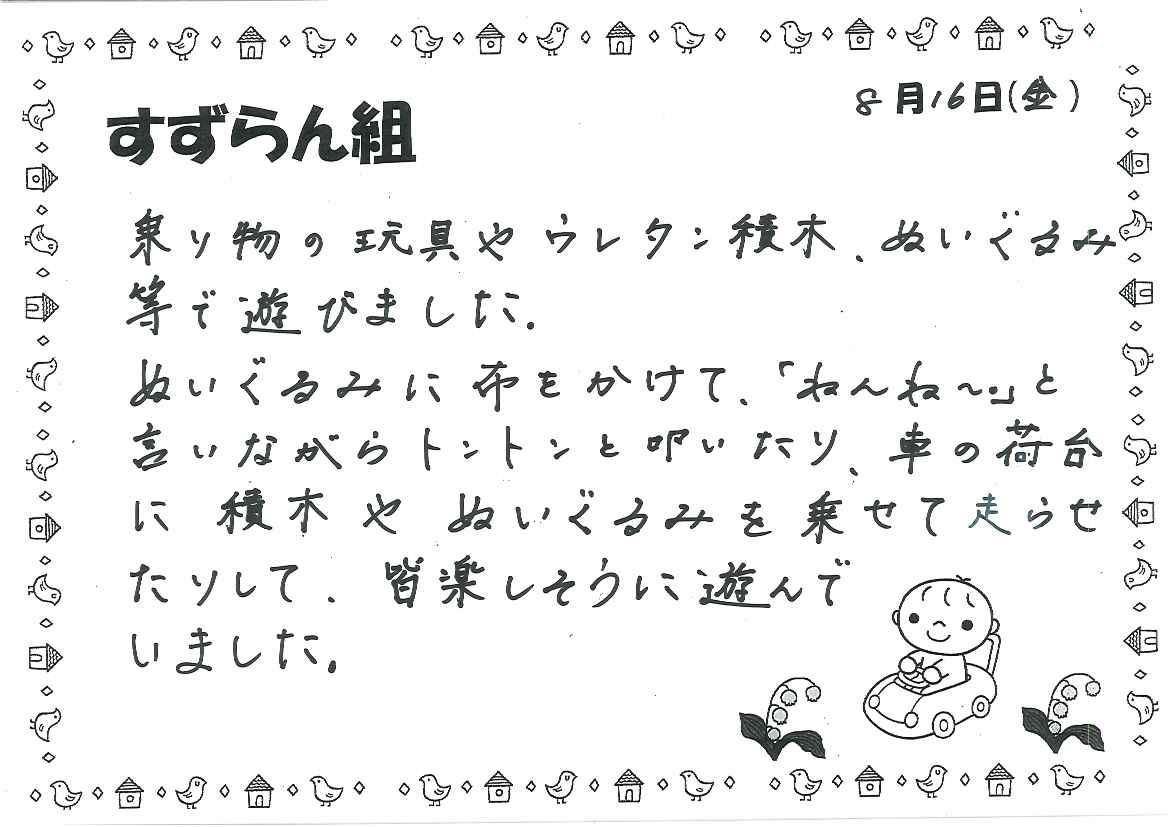 8月16日(金)
すずらん組
乗り物の玩具やウレタン積木、ぬいぐるみ
等で遊びました。
ぬいぐるみに布をかけて、「ねんね〜。」と
言いながらトントンと叩いたり、車の荷台
に積木やぬいぐるみを乗せて走らせ
たりして、皆楽しそうに遊んで
いました。